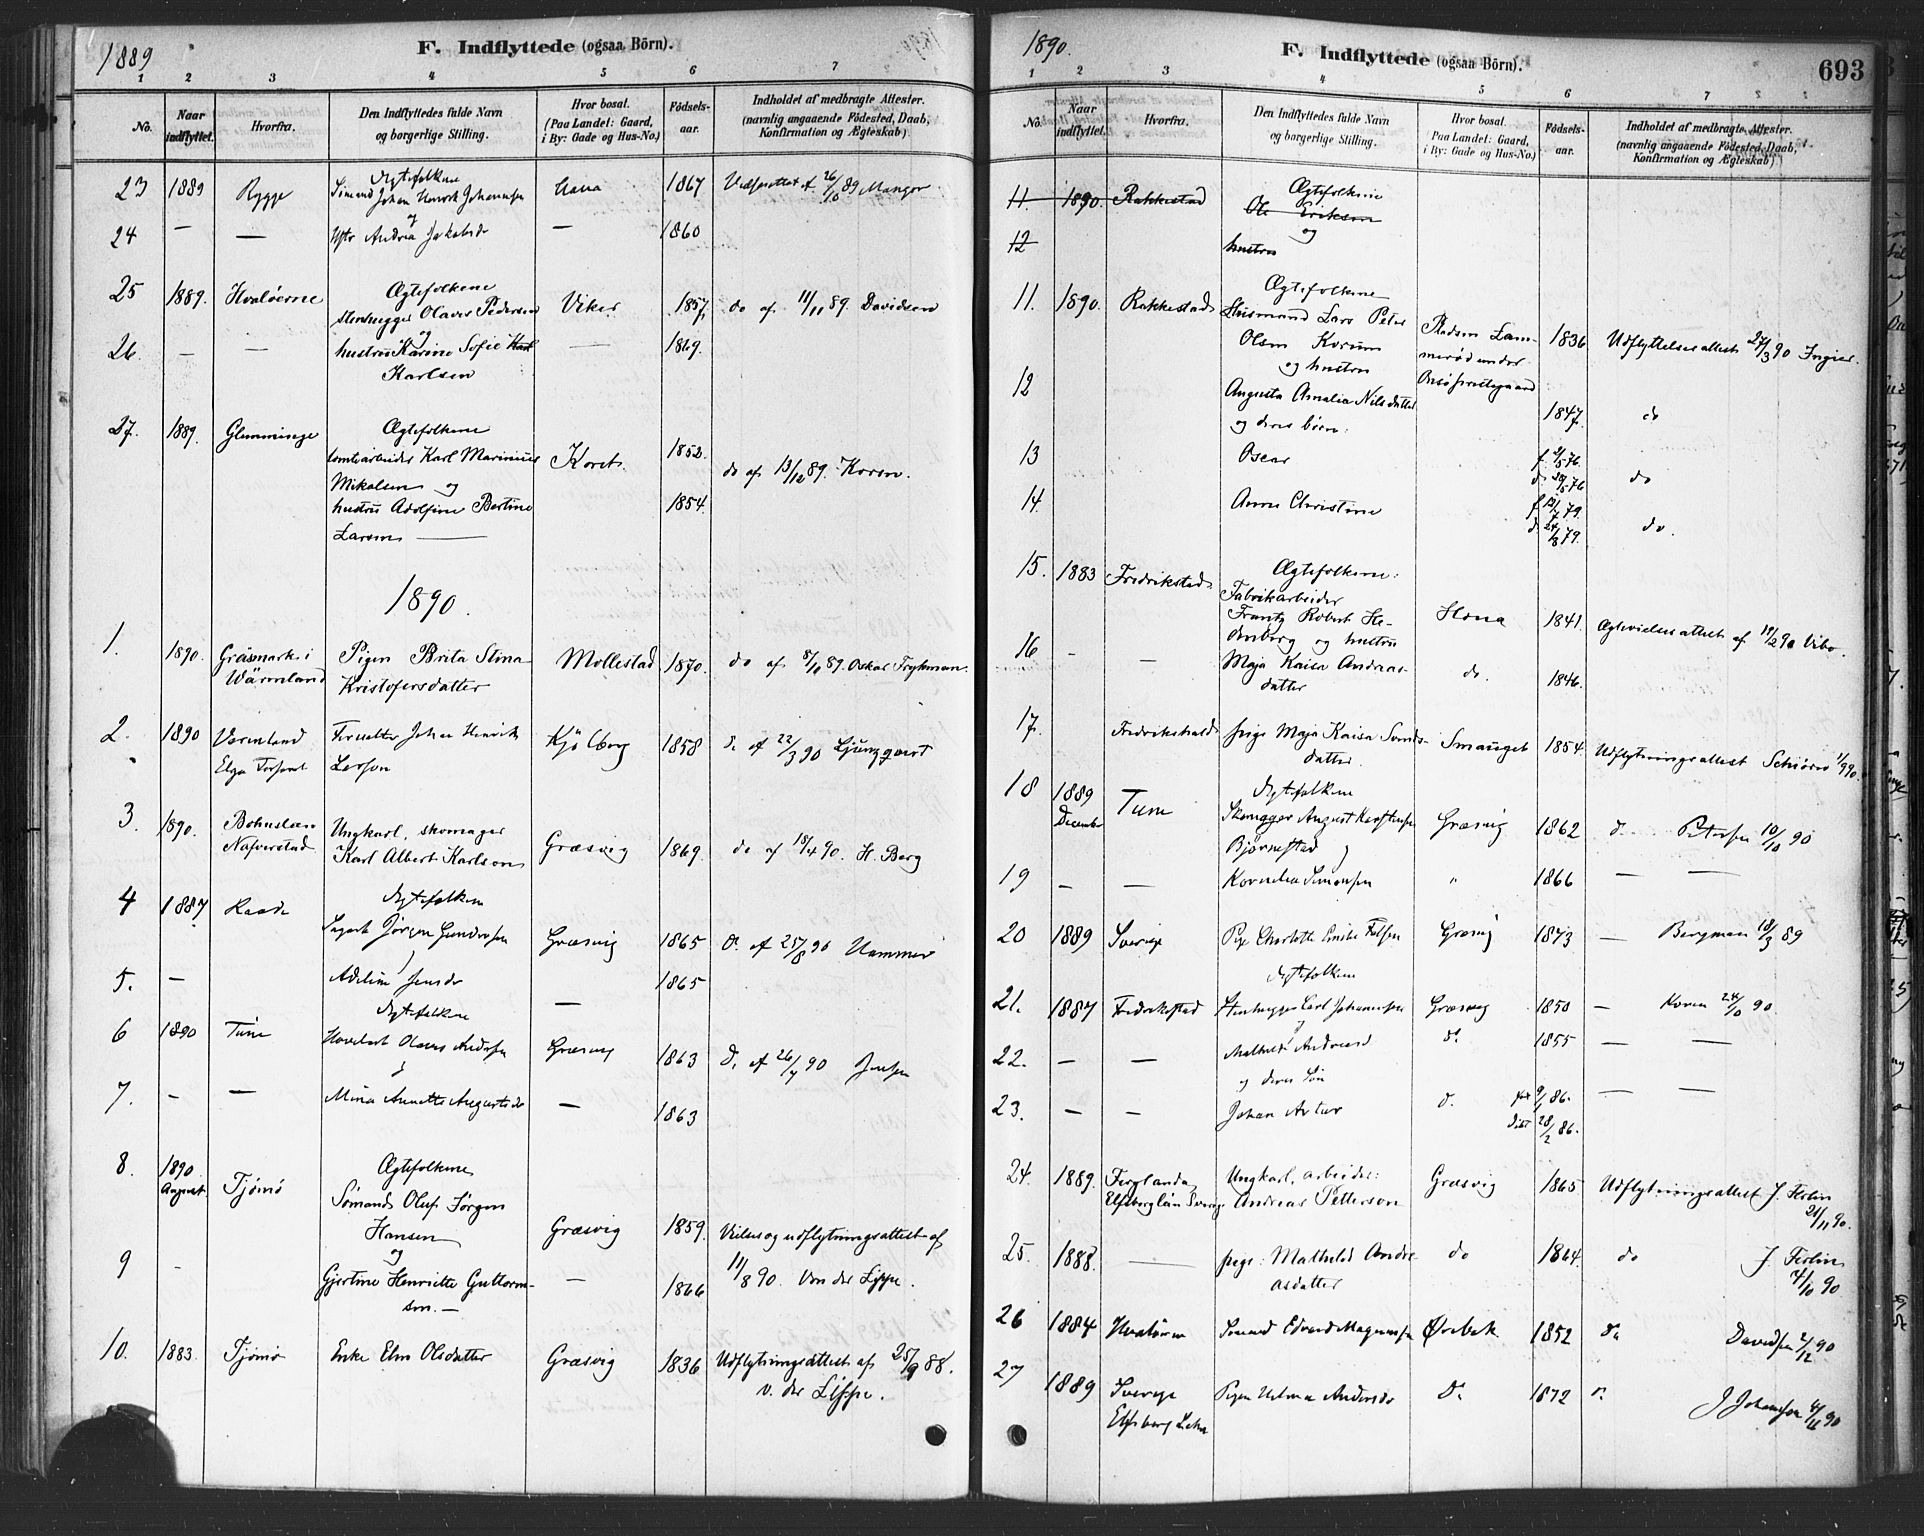 1889
F. Indflyttede (ogsaa Börn).
1 2 3 4 5 6 7
No.
Naar indflyttet.
Hvorfra.
Den Indflyttedes fulde Navn og borgerlige Stilling.
Hvor bosat. (Paa Landet: Gaard, i By: Gade og Hus-No.)
Födsels-aar.
Indholdet af medbragte Attester. (navnlig angaaende Födested, Daab, Konfirmation og Ægteskab)
23 1889 Rygge Ægtefolkene
Sömand Johan Henrik Johannesen 1867 26/10 89 Mangor
og
24 — — Andrea Jakobsd — 1860
25 1889. Hvalöerne Ægtefolkene
stenhugger Olaves Pedersen Viker 1857 do af 11/11 89. Davidsen
og
26. — — hustru Karine Sofie Karl — 1869.
Karlsen
27. 1889. Glemminge Ægtefolkene
tomtearbeider Karl Marinius 1852. do af 13/12 89. Koren.
Mikalsen og
hustru Adolfine Bertine 1854.
Larsen —
1890.
1. 1890. Gräsmark i Pigen Brita Stina Mollestad 1870. do af 8/10 89. Oskar Frykman.
Wärmland Kristofersdatter
2. 1890 Vermland Johan Henrik Kjölberg 1858 do af 22/3 90 Ljungqvist
Elga
3. 1890. Bohuslän Ungkarl, skomager
Nafverstad Karl Albert Karlson Græsvig 1869. do af 18/4 90. H. Berg
4 1887 Raade Ægtefolkene
Jörgen Gundersen Græsvig 1865 do af 25/8 90 Hammer
5. — Adeline Jensd — 1865
Ægtefolkene
6 1890 Tune Olaves Andersen Græsvig 1863 do af 26/7 90 Jensen
7. — — Mina Annette Augustsd — 1863
8. 1890 August. Tjömö Ægtefolkene
Sömand Oluf Jörgen
Hansen Græsvig 1859. Vielses og udflytningsattest af
og
9 — Gjertine Henriette Guttorm- — 1866 11/8 90. Von der Lippe.
sen. —
10. 1883. Tjömö Enke Elen Olsdatter Græsvig 1836 Udflytningsattest af 25/9 88.
v. der Lippe.
1890.
F. Indflyttede (ogsaa Börn).
693
1 2 3 4 5 6 7
No.
Naar indflyttet.
Hvorfra.
Den Indflyttedes fulde Navn og borgerlige Stilling.
Hvor bosat. (Paa Landet: Gaard, i By: Gade og Hus-No.)
Födsels-aar.
Indholdet af medbragte Attester. (navnlig angaaende Födested, Daab, Konfirmation og Ægteskab)
11. 1890. Rakkestad Ægtefolkene
Ole Eriksen
og
12 hustru
11. 1890. Rakkestad Ægtefolkene
Husmand Lars Peter Pladsen Lam- 1836 Udflyttelsesattest 27/3 90 Ingier.
Olsen Korum merød under
og hustru Onsø prestegaard
12 Augusta Amalia Nilsdatter 1847. do
og deres börn:
13 Oscar f. 2/5 76. d. 30/5 76 do
14. Anna Christine f 13/7 79. d. 24/8 79. do.
15. 1883 Fredrikstad Ægtefolkene:
Fabrikarbeider
Frantz Robert He- 1841. Ægtevielsesattest af 19/2 90 Vibo.
denberg og hustru
16 — — Maja Kaisa Andreas- do. 1846.
datter
17. Fredrikshald pige Maja Kaisa Svends- Smauget 1854. Udflytningsattest 1/9 90.
datter.
18 1889 December Tune Ægtefolkene
August Græsvig 1862 d. Petersen 10/10 90
Björnestad
19 — — Kornelia Simonsen " 1866 — —
20 1889 Sverige Pige Charlotte Emilie Græsvig 1843 — Bergman 18/3 89
Ægtefolkene
21. 1887 Fredrikstad Stenhugger Carl Johannesen Græsvig 1850 — Koren 24/10 90.
22. — — Mathilde Andreasd do 1855 — —
og deres Sön
23. — — Johan Artur d. föd 9/1 86. döbt 28/2 86. — —
24. 1889. Ferglanda Ungkarl, arbeider: Græsvig 1865 Udflytningsattest J. Ferlin
Elfsborg län Sverige Andreas Petterson 21/11 90.
25. 1888. — pige: Mathilde Andre- do 1864. do J Ferlin
asdatter 7/10 90
26 1884 Hvalöerne Sömand Edvard Magnussen Ørebæk 1852 do Davidsen 2/12 90
27 1889 Sverige Pigen Andersd Do 1872 J Johansson 4/11 90
Elfsborg Lehn